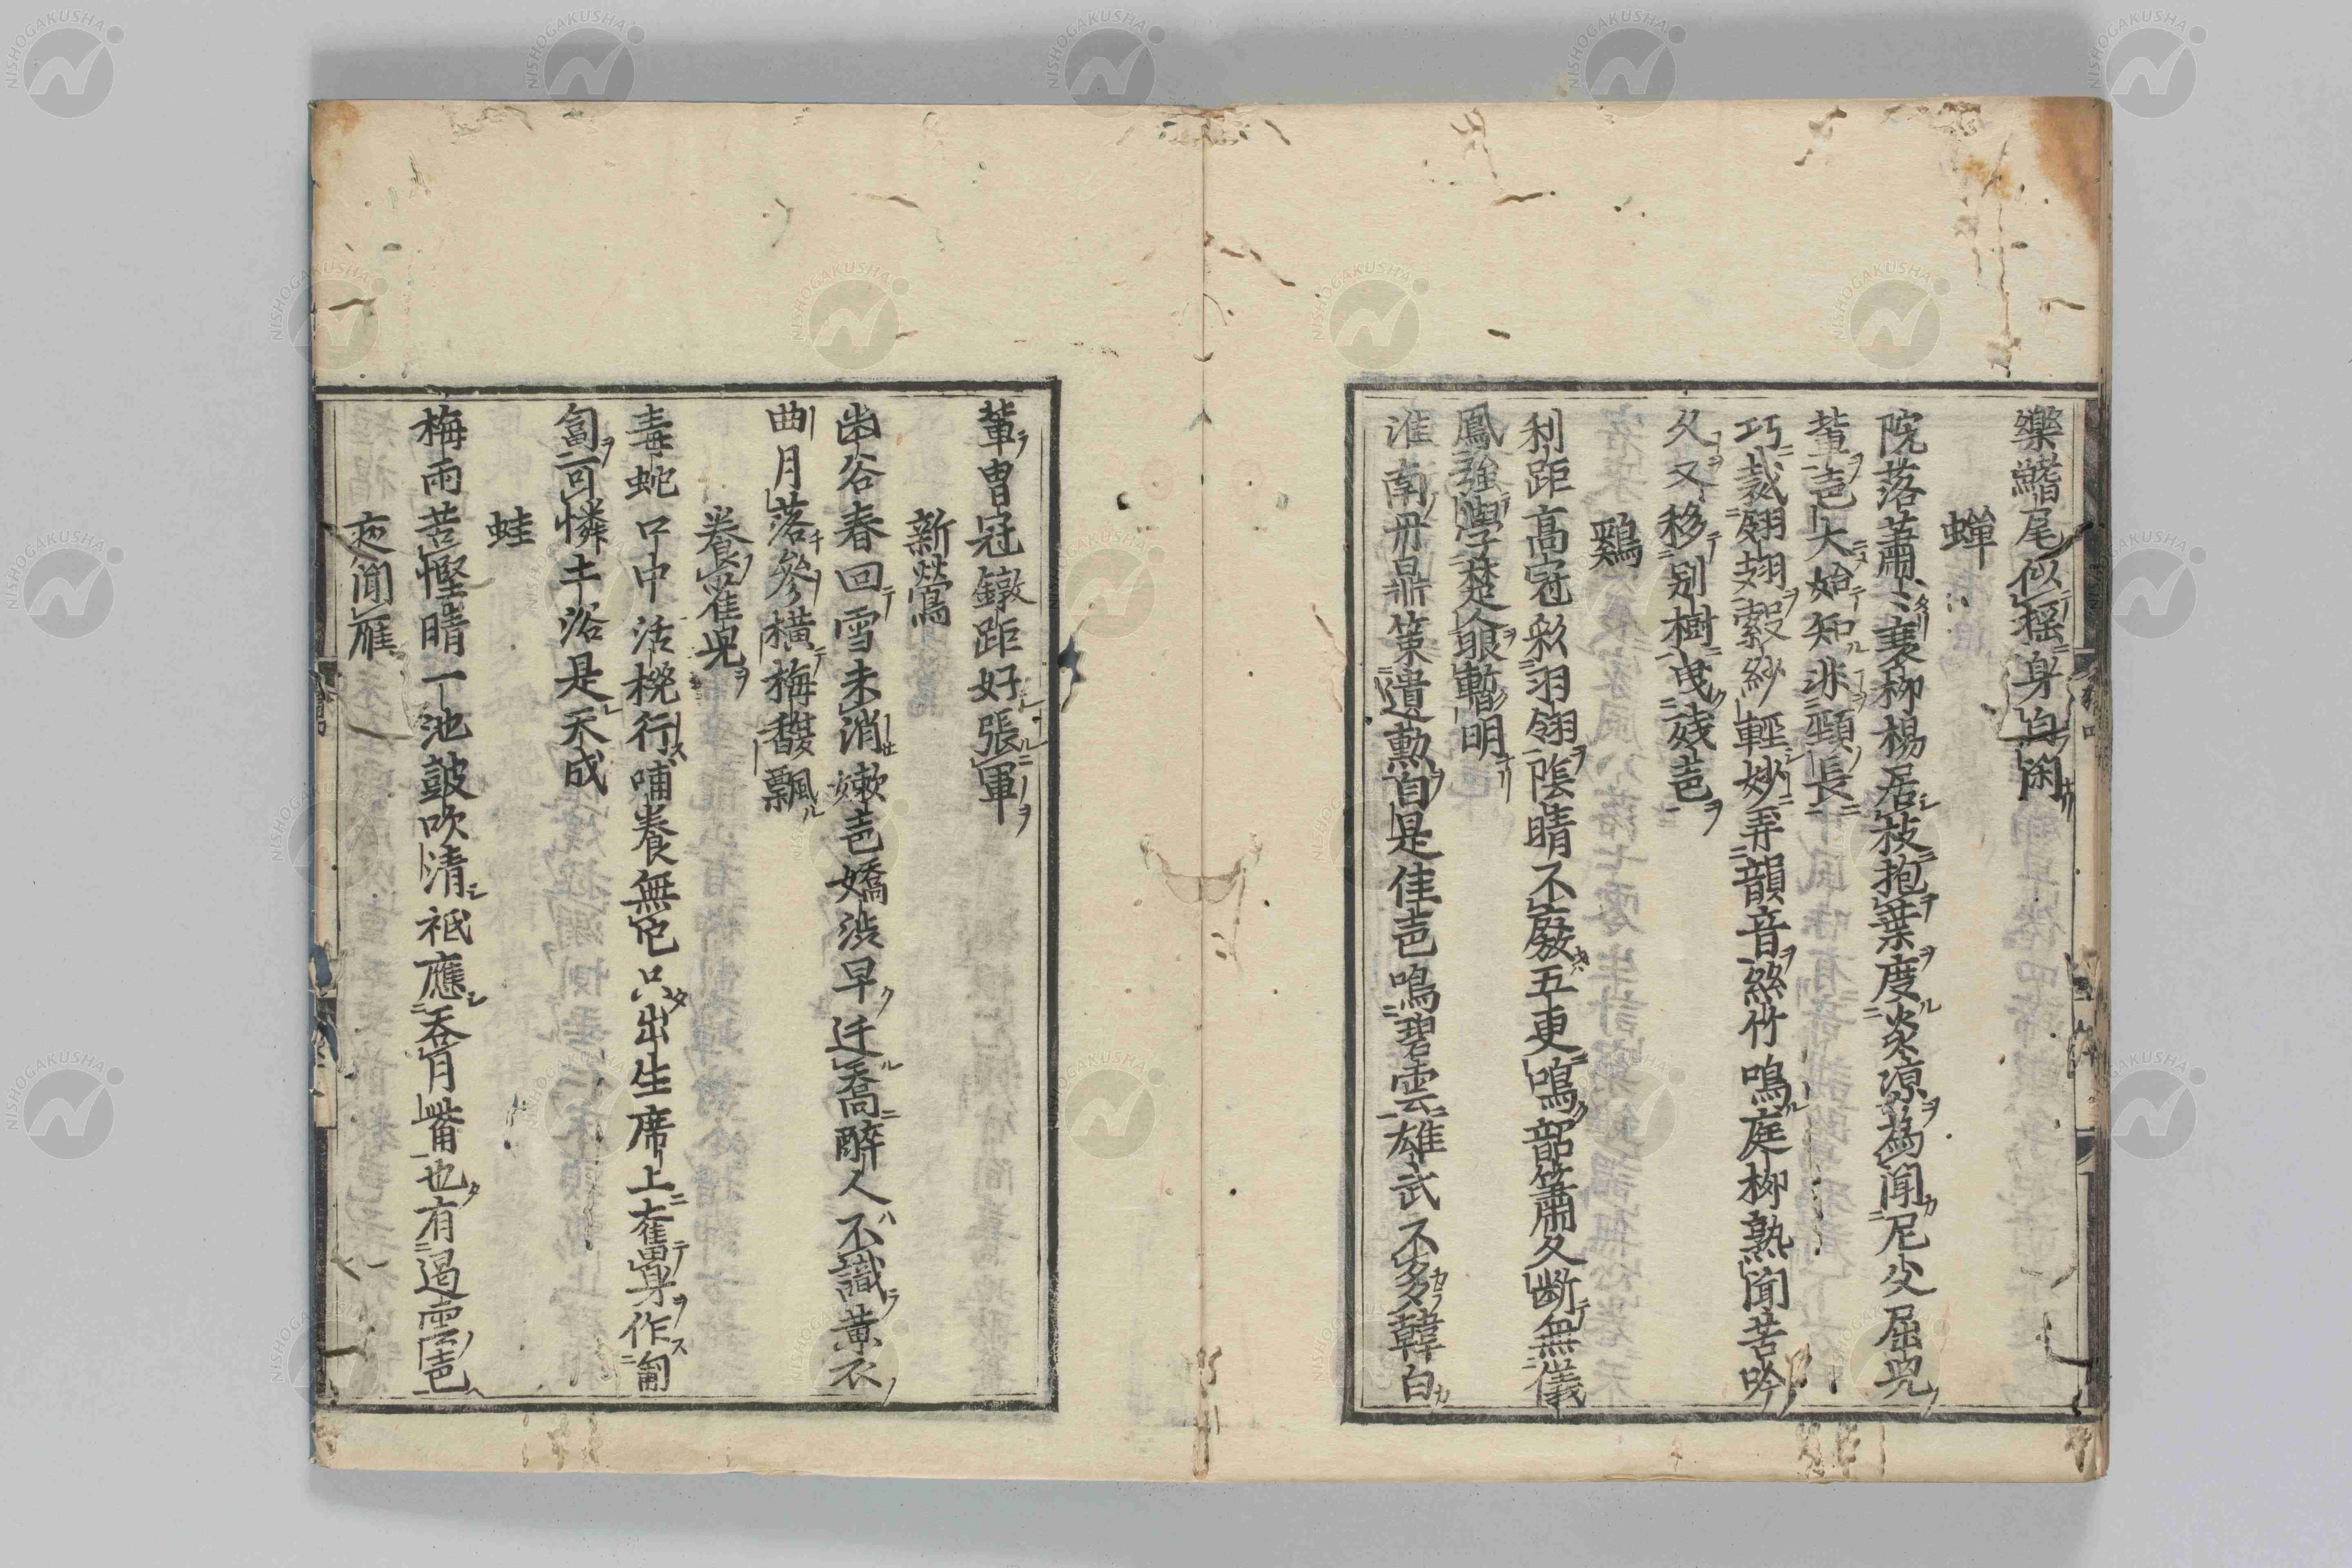 樂鰌尾似揺身自閑
蟬
院落蕭〻裏柳楊居枝抱葉度炎凉為聞尼父屈皃
輩邑大始知非頸長
巧裁翅翅縠縈紗輕妙弄韻音絲竹鳴庭柳熟聞苦吟
久又移別樹曳殘邑
鷄
利距高冠彩羽翎陰晴不廢五更鳴韶簫久斷無儀
鳳強學楚人眼暫明
淮南丹鼎策遺勲自是佳邑鳴碧雲雄武不多韓白
輩曺冠鐓距好張軍
新鶯
出谷春回雪未消嫩邑嬌渋早迁喬醉人不識黄衣
曲月落參横梅馥飄
養雀皃
毒蛇口中活機行哺養無它只出生席上奮身作匍
匐可憐牛浴是天成
蛙
梅雨苦慳晴一池皷吹清祗應吞月觜也有遏雲邑
夜聞雁